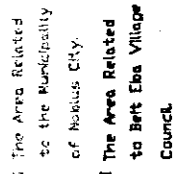 The Area Related
to the Municipality
of Nablus City.
The Area Related
to Beit Eba Village
Council